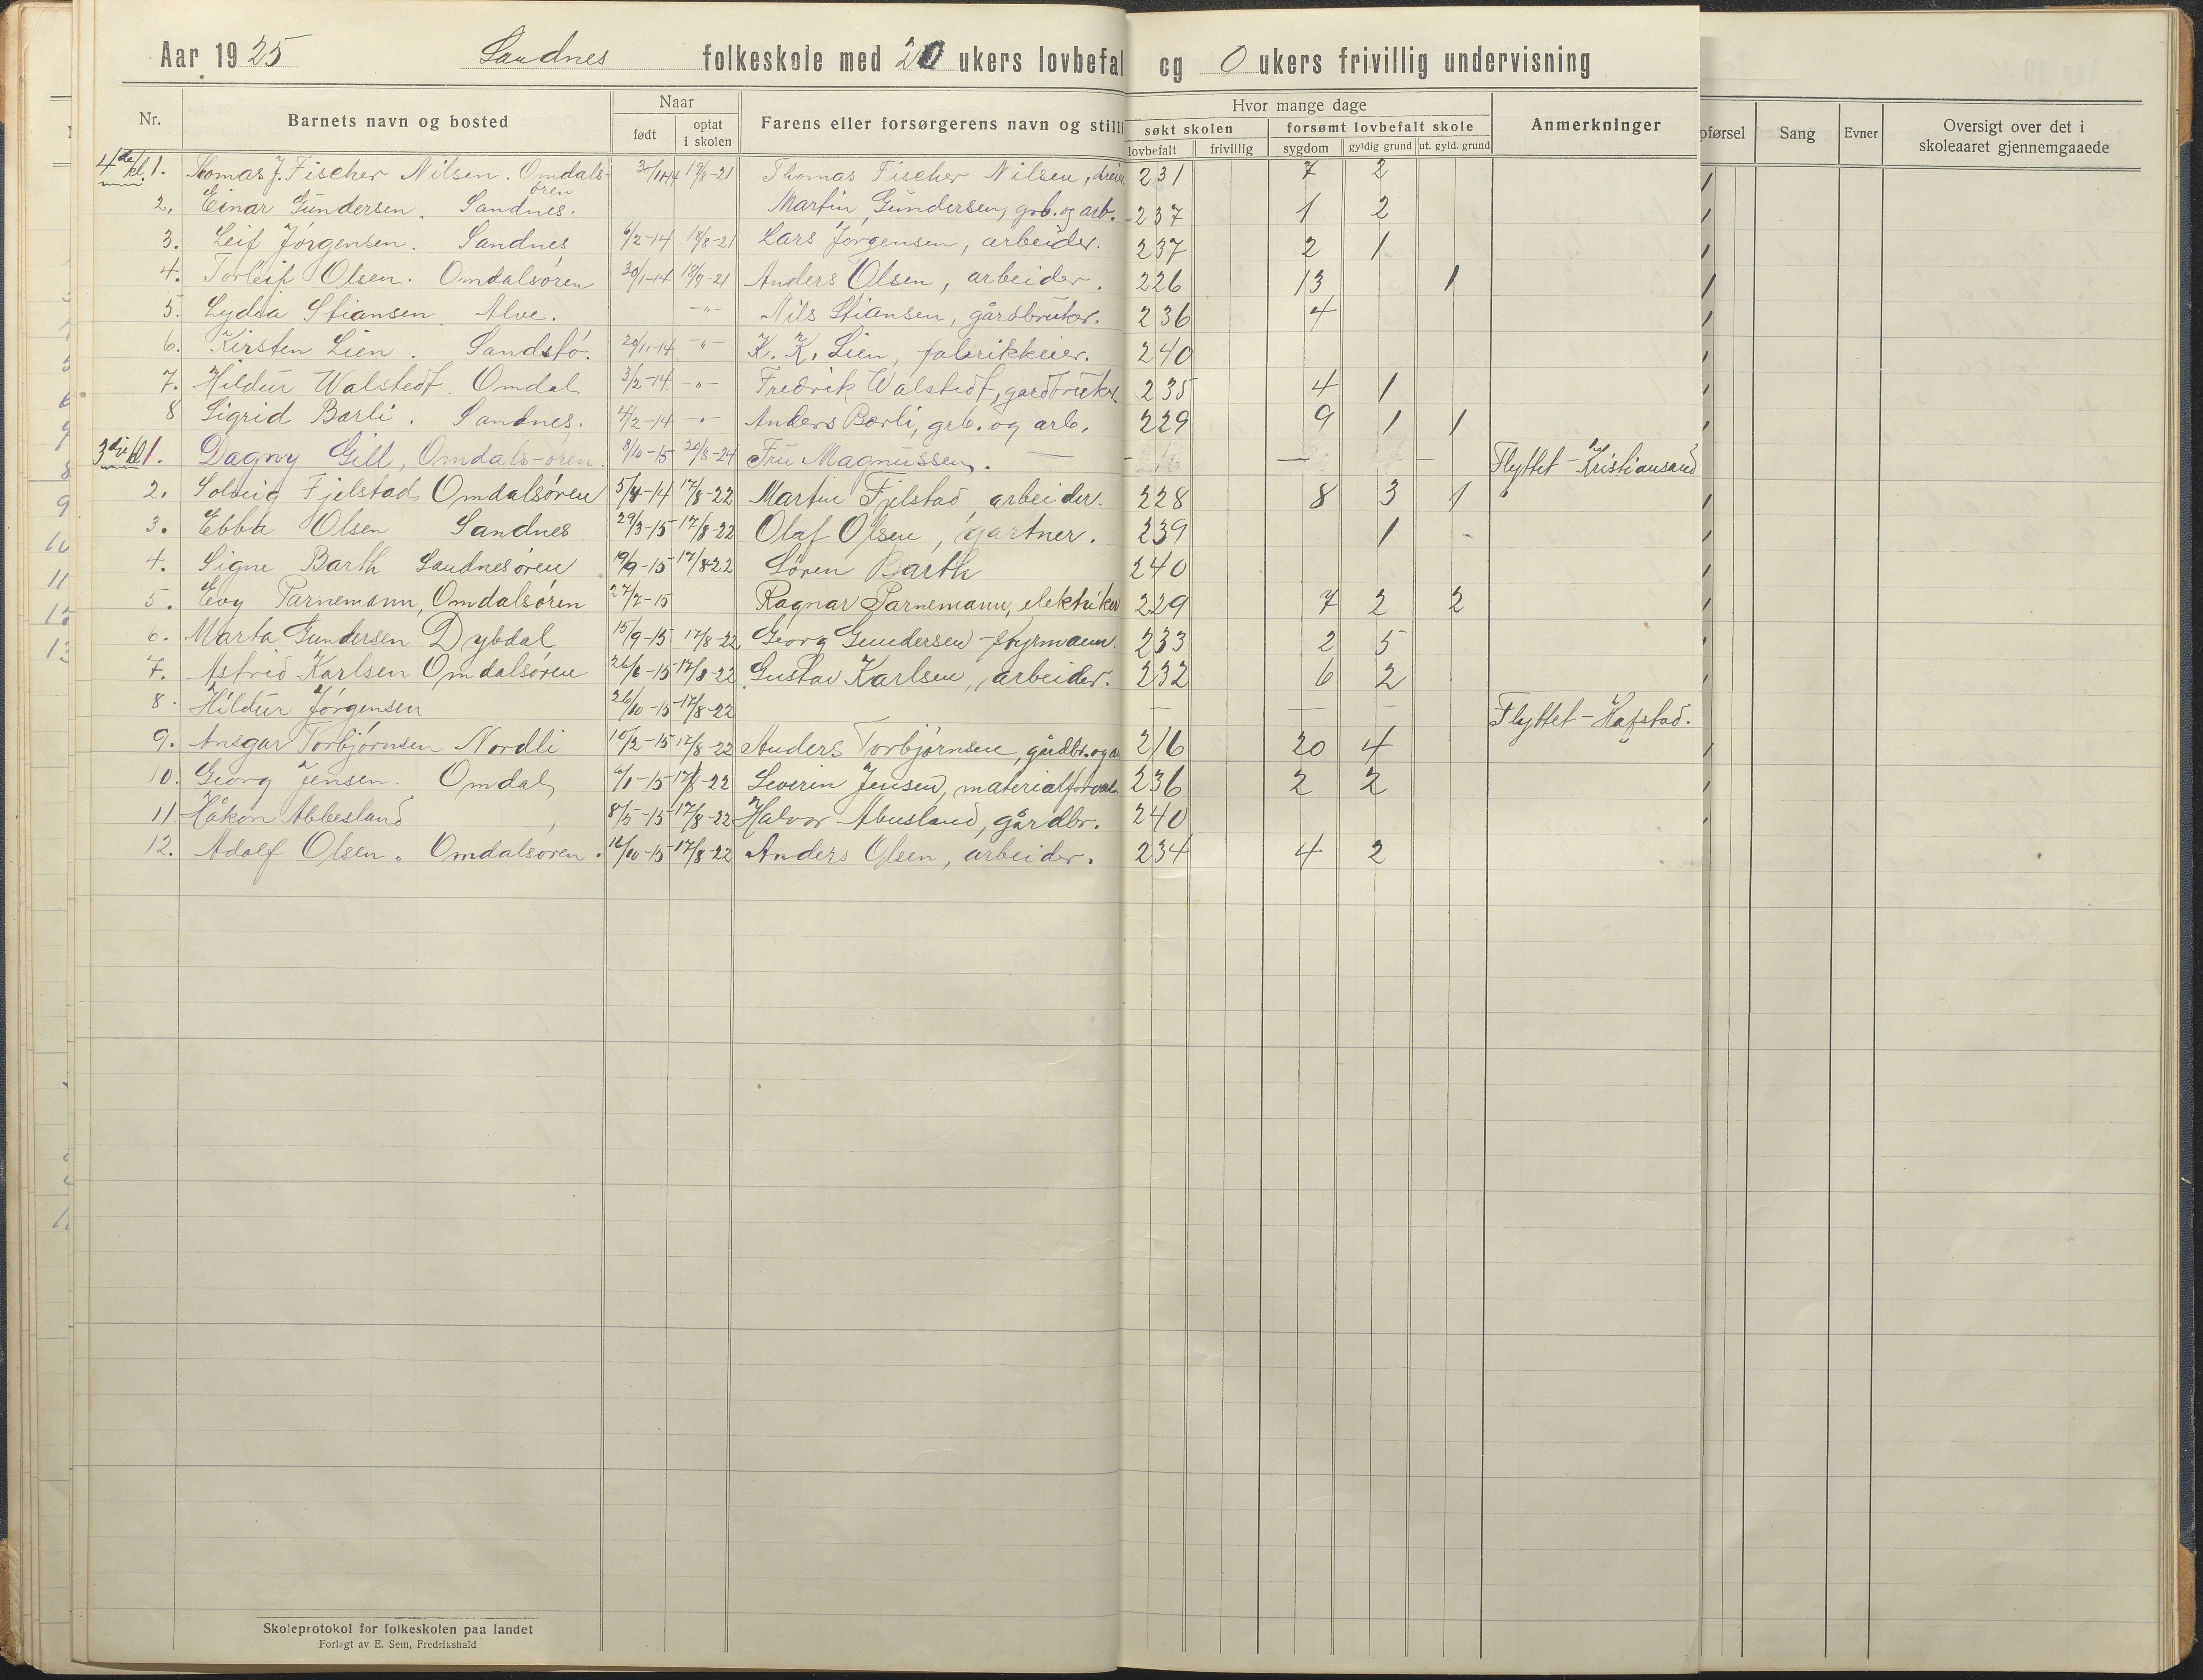 Aar 1925 Sandnes folkeskole med 20 ukers lovbefal og 0 ukers frivillig undervisning
Nr. Barnets navn og bosted Naar født optat i skolen Farens eller forsørgerens navn og still Hvor mange dage søkt skolen lovbefalt frivillig forsømt lovbefalt skole sygdom gyldig grund ut. gyld. grund Anmerkninger pførsel Sang Evner Oversigt over det i skoleaaret gjennemgaaede
4de kl. 1. Thomas J. Fischer Nilsen. Omdalsøren 30/11-14 19/8-21 Thomas Fischer Nilsen, 231 7 2
2. Einar Gundersen. Sandnes. Martin Gundersen, grb. og arb. 237 1 2
3. Leif Jörgensen. Sandnes 6/2-14 18/8-21 Lars Jörgensen, arbeider. 237 2 1
4. Torleif Olsen. Omdalsören 30/1-14 18/8-21 Anders Olsen, arbeider. 226 13 1
5. Lydia Stiansen. Alve. -"- Nils Stiansen, gårdbruker. 236 4
6. Kirsten Lien. Sandstö. 20/11-14 -"- K. K. Lien, fabrikkeier. 240
7. Hildur Walstedt. Omdal 3/2-14 -"- Fredrik Walstedt, gardbruker. 235 4 1
8 Sigrid Barli. Sandnes. 4/2-14 -"- Anders Barli, grb. og arb. 229 9 1 1
3die kl 1. Dagny Gill, Omdals-ören. 8/10-15 20/8-24 Fru Magnussen. — — — Flyttet - Kristiansand
2. Solveig Fjelstad, Omdalsören 5/4-14 17/8-22 Martin Fjelstad, arbeider. 228 8 3 1
3. Ebba Olsen Sandnes 29/3-15 17/8-22 Olaf Olsen, gartner. 239 1
4. Signe Barth Sandnesören 19/9-15 17/8-22 Sören Barth 240
5. Evy Parnemann, Omdalsören 27/7-15 Ragnar Parnemann, elektriker 229 7 2 2
6. Marta Gundersen Dybdal 15/9-15 17/8-22 Georg Gundersen - styrmann. 233 2 5
7. Astrid Karlsen Omdalsören 26/6-15 17/8-22 Gustav Karlsen, arbeider. 232 6 2
8. Hildur Jörgensen 26/10-15 17/8-22 — — — Flyttet - Hafstad.
9. Ansgar Torbjörnsen Nordli 10/2-15 17/8-22 Anders Torbjörnsen, gårdbr. og a 216 20 4
10. Georg Jensen. Omdal 6/1-15 17/8-22 Severin Jensen, materialforval. 236 2 2
11. Håkon Abbesland 8/5-15 17/8-22 Halvor Abusland, gårdbr. 240
12. Adolf Olsen. Omdalsören. 16/10-15 17/8-22 Anders Olsen, arbeider. 234 4 2
Skoleprotokol for folkeskolen paa landet
Forlagt av E. Sem, Fredrikshald